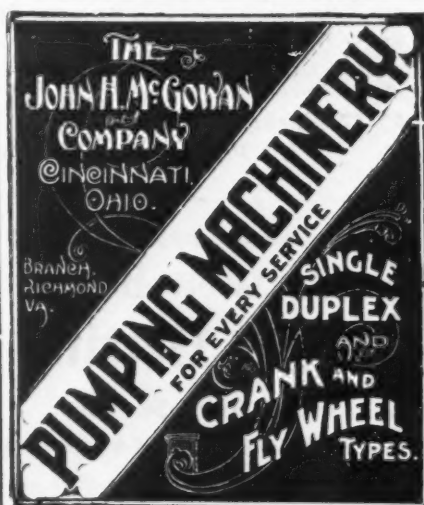 THE
JOHN H. McGOWAN
and
COMPANY
CINCINNATI,
OHIO.
BRANCH.
RICHMOND
VA.
PUMPING MACHINERY
FOR EVERY SERVICE
SINGLE
DUPLEX
AND
CRANK AND
FLY WHEEL
TYPES.